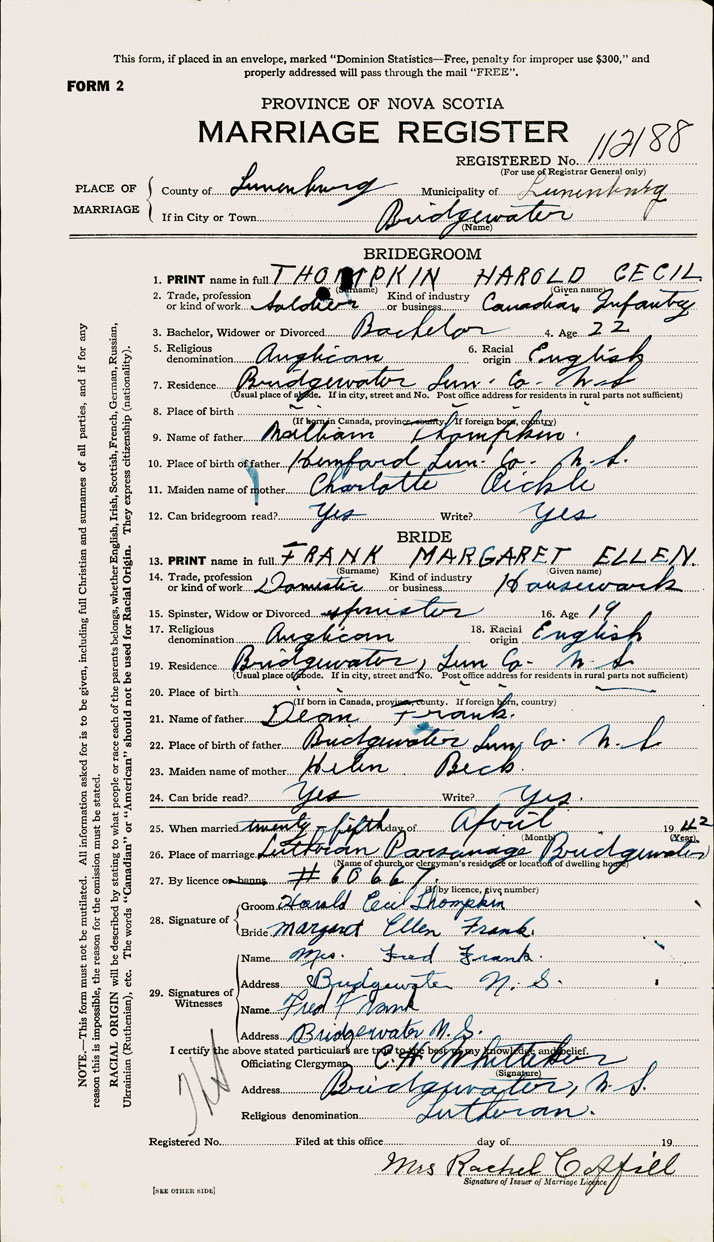 This form, if placed in an envelope, marked "Dominion Statistics—Free, penalty for improper use $300," and
properly addressed will pass through the mail "FREE".
FORM 2
PROVINCE OF NOVA SCOTIA
MARRIAGE REGISTER
REGISTERED No. 112188
(For use of Registrar General only)
PLACE OF MARRIAGE
County of Lunenburg Municipality of Lunenburg
If in City or Town Bridgewater
(Name)
BRIDEGROOM
1. PRINT name in full THOMPKIN HAROLD CECIL
(Surname) (Given name)
2. Trade, profession or kind of work Soldier Kind of industry or business Canadian Infantry
3. Bachelor, Widower or Divorced Bachelor 4. Age 22
5. Religious denomination Anglican 6. Racial origin English
7. Residence Bridgewater Lun. Co. N.S.
(Usual place of abode. If in city, street and No. Post office address for residents in rural parts not sufficient)
8. Place of birth " " " "
(If born in Canada, province, county. If foreign born, country)
9. Name of father Thompkin.
10. Place of birth of father Hemford Lun. Co. N.S.
11. Maiden name of mother Charlotte Eickle
12. Can bridegroom read? Yes Write? Yes
BRIDE
13. PRINT name in full FRANK MARGARET ELLEN.
(Surname) (Given name)
14. Trade, profession or kind of work Domestic Kind of industry or business Housework
15. Spinster, Widow or Divorced Spinster 16. Age 19
17. Religious denomination Anglican 18. Racial origin English
19. Residence Bridgewater, Lun Co. N.S.
(Usual place of abode. If in city, street and No. Post office address for residents in rural parts not sufficient)
20. Place of birth " " " "
(If born in Canada, province, county. If foreign born, country)
21. Name of father Dean Frank.
22. Place of birth of father Bridgewater Lun. Co. N.S.
23. Maiden name of mother Helen Beck
24. Can bride read? Yes Write? Yes.
25. When married twenty-fifth day of April 1942
(Month) (Year)
26. Place of marriage Lutheran Parsonage Bridgewater
(Name of church or clergyman's residence or location of dwelling house)
27. By licence or banns #60667.
(If by licence, give number)
28. Signature of
Groom Harold Cecil Thompkin
Bride Margaret Ellen Frank.
29. Signatures of Witnesses
Name Mrs. Fred Frank.
Address Bridgewater N. S.
Name Fred Frank
Address Bridgewater N.S.
I certify the above stated particulars are true to the best of my knowledge and belief.
Officiating Clergyman C.H. Whitteker
(Signature)
Address Bridgewater, N.S.
Religious denomination Lutheran.
Registered No. Filed at this office day of 19
Mrs Rachel Coffill
Signature of Issuer of Marriage Licence
[SEE OTHER SIDE]
NOTE.—This form must not be mutilated. All information asked for is to be given, including full Christian and surnames of all parties, and if for any
reason this is impossible, the reason for the omission must be stated.
RACIAL ORIGIN will be described by stating to what people or race each of the parents belongs, whether English, Irish, Scottish, French, German, Russian,
Ukrainian (Ruthenian), etc. The words "Canadian" or "American" should not be used for Racial Origin. They express citizenship (nationality).